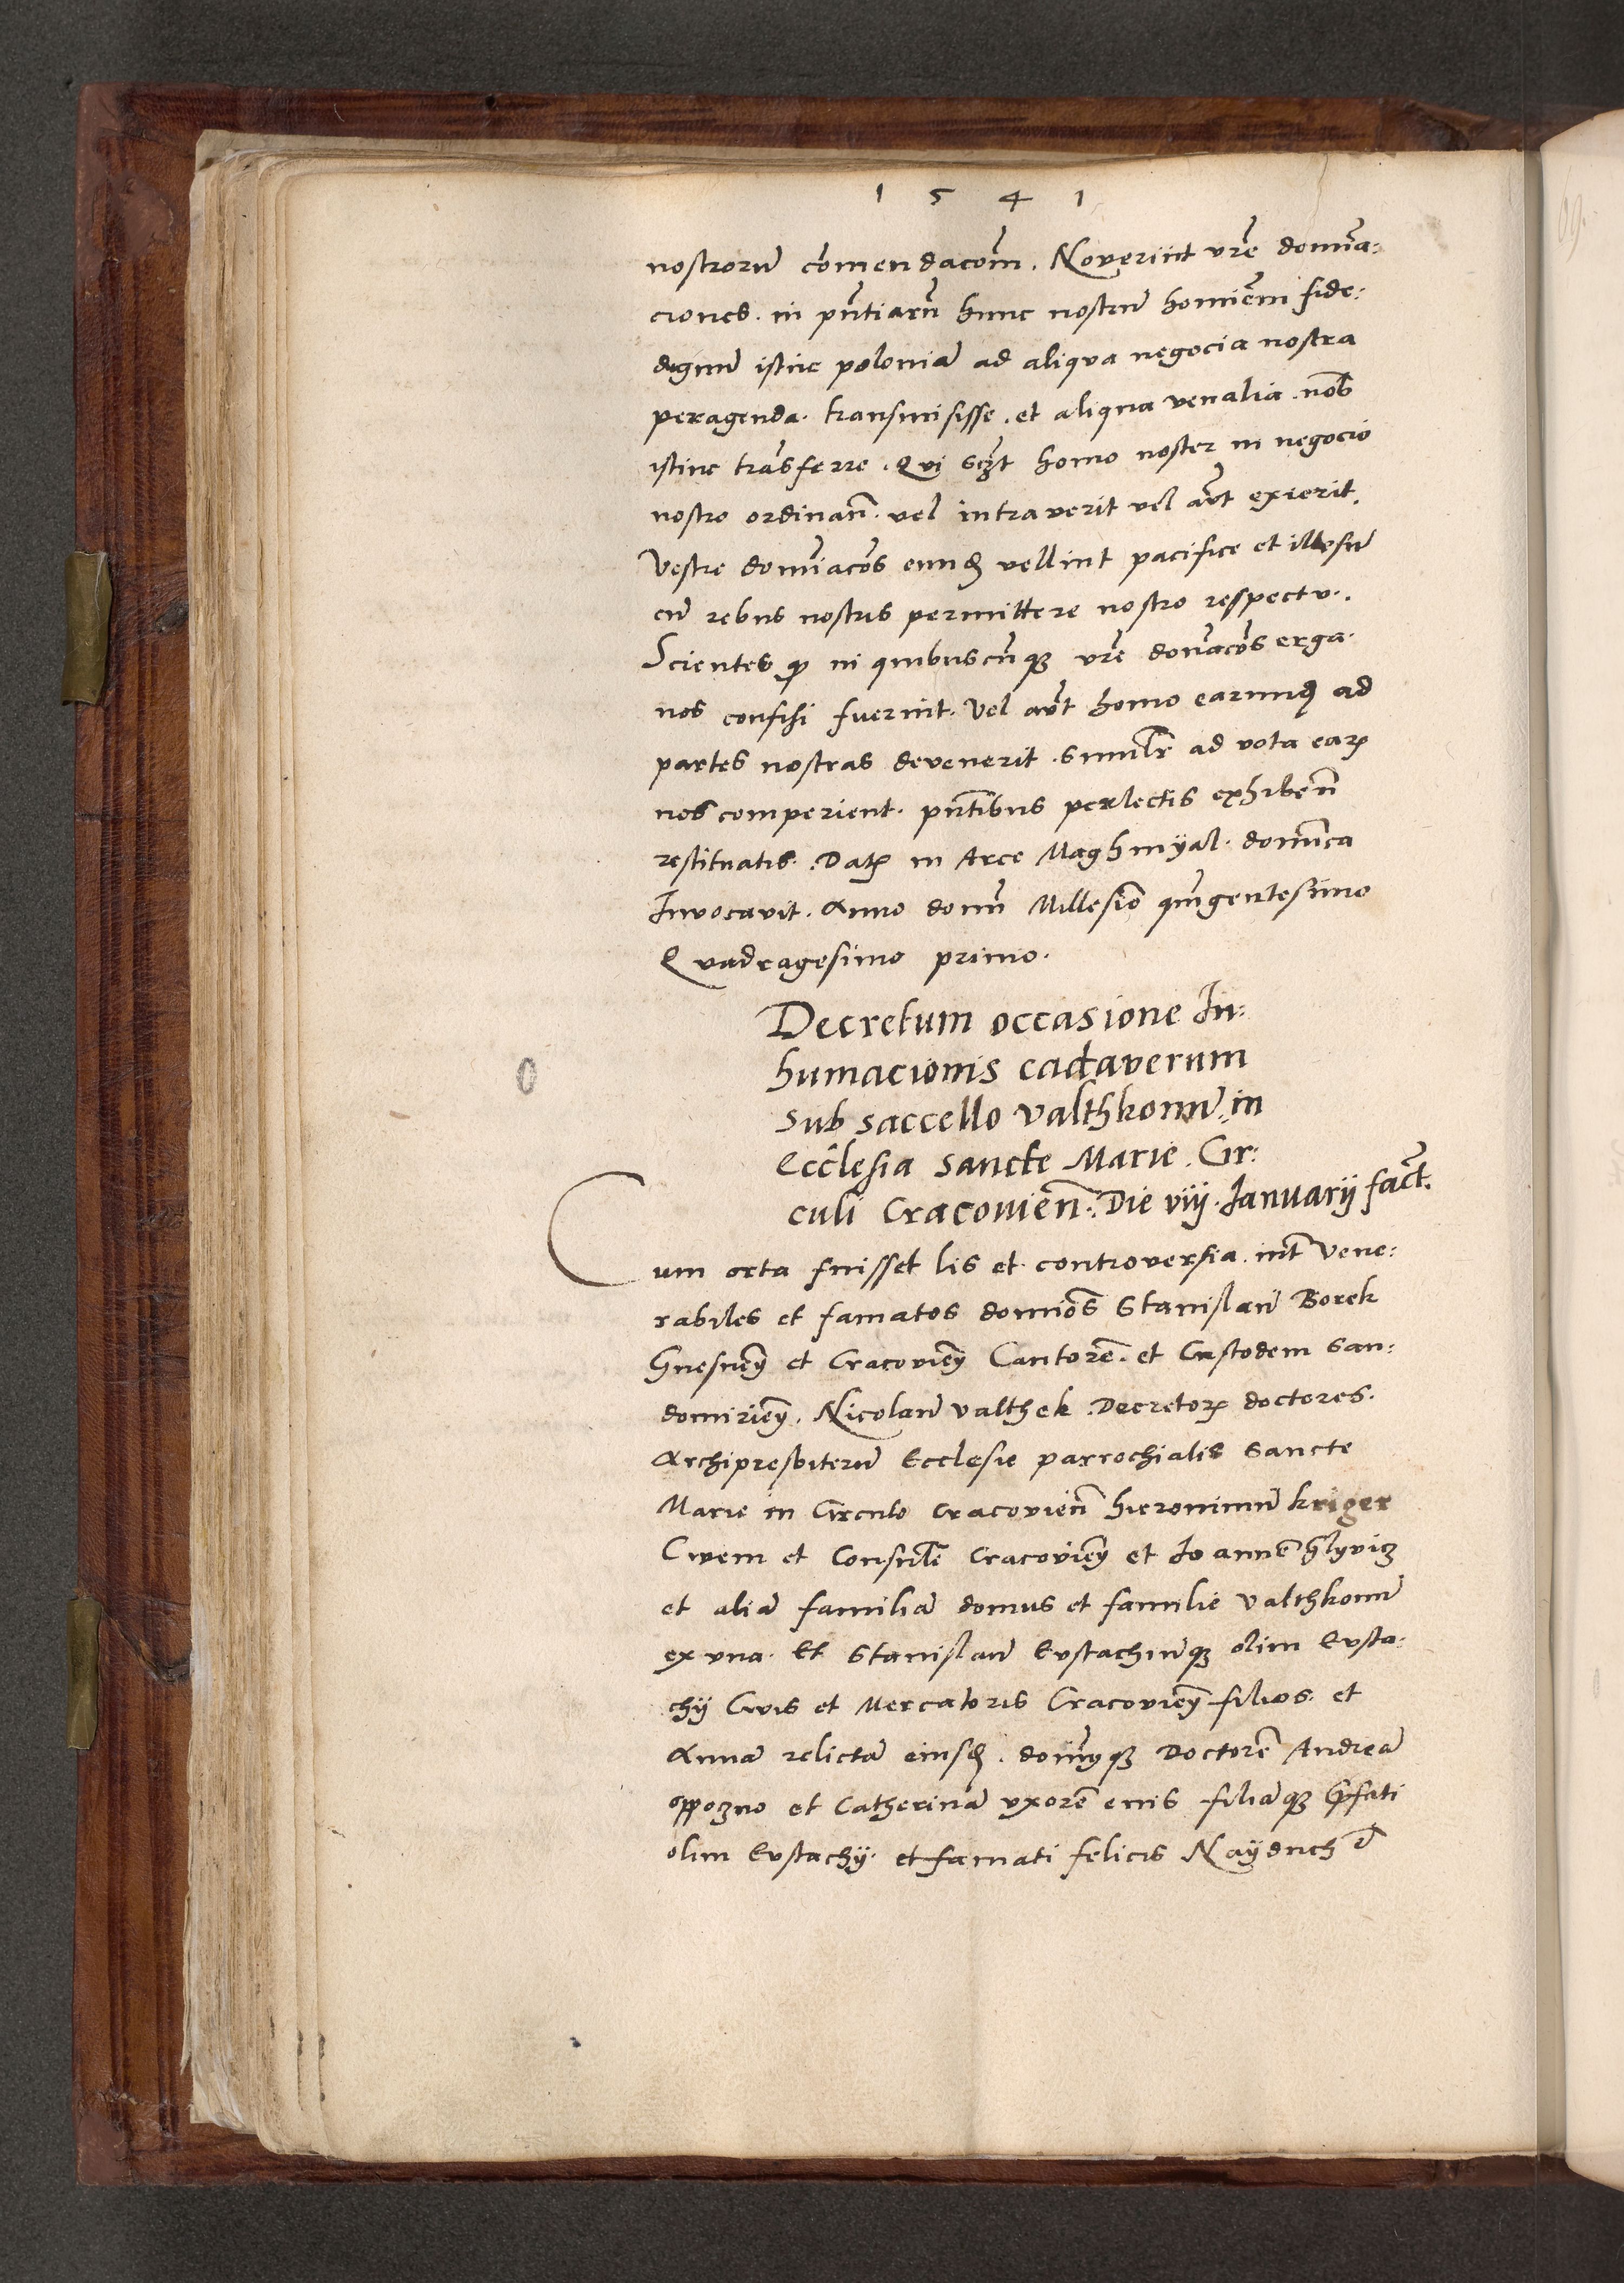 1541
nostrorũ cõmendacom̃. Noverint vr̃e domĩa:
ciones. in pñtiarũ hunc nostrũ homiẽm fide:
dignũ istuc poloniã ad aliqua negocia nostra
peragenda. transmisisse. et aliqua venalia. nob̃
istinc trãsferre. Qui sczt homo noster in negocio
nostro ordinañ. vel intraverit vel aũt exierit.
Vestre domĩacõs eundẽ vellint pacifice et illesũ
cũ rebus nostris permittere nostro respectu.
Scientes q̃ in quibuscũq3 vr̃e domĩacõs erga
nos confisi fuerint. Vel aũt homo earundẽ ad
partes nostras devenerit. simil̃r ad vota earꝝ
nos comperient. pñtibus perlectis exhibeñ
restituatis. Datꝝ in Arce Maghmÿal. domĩca
Invocavit. Anno domĩ Millesiõ quĩgentesimo
Quadragesimo primo.
Decretum occasione In:
humacionis cadaverum
sub saccello Valthkonũ. in
Ecclesia sancte Marie. Cir:
culi Cracovieñ. Die viij. Ianuarij fact̃.
Cum orta fuisset lis et controversia. int̃ Vene:
rabiles et famatos domiõs Stanislaũ Borek
Gnesneñ et Cracovieñ Cantorẽ. et Custodem San:
domirieñ. Nicolaũ Valthek Decretorꝝ doctores.
Archipresbiterũ Ecclesie parrochialis Sancte
Marie in Circulo Cracovieñ hieronimũ kriger
Civem et Consulẽ Cracovieñ et Ioannẽ
et aliã familiã domus et familie Valthkonũ
ex una. Et Stanislaũ Eustachiũq3 olim Eusta:
chij Civis et Mercatoris Cracovieñ filios. et
Annã relictã eiusdẽ. domĩq3 Doctorẽ Andreã
oppozno et Catherinã uxorẽ eius filiãq3 p̃fati
olim Eustachij. et famati felicis Naÿdnch